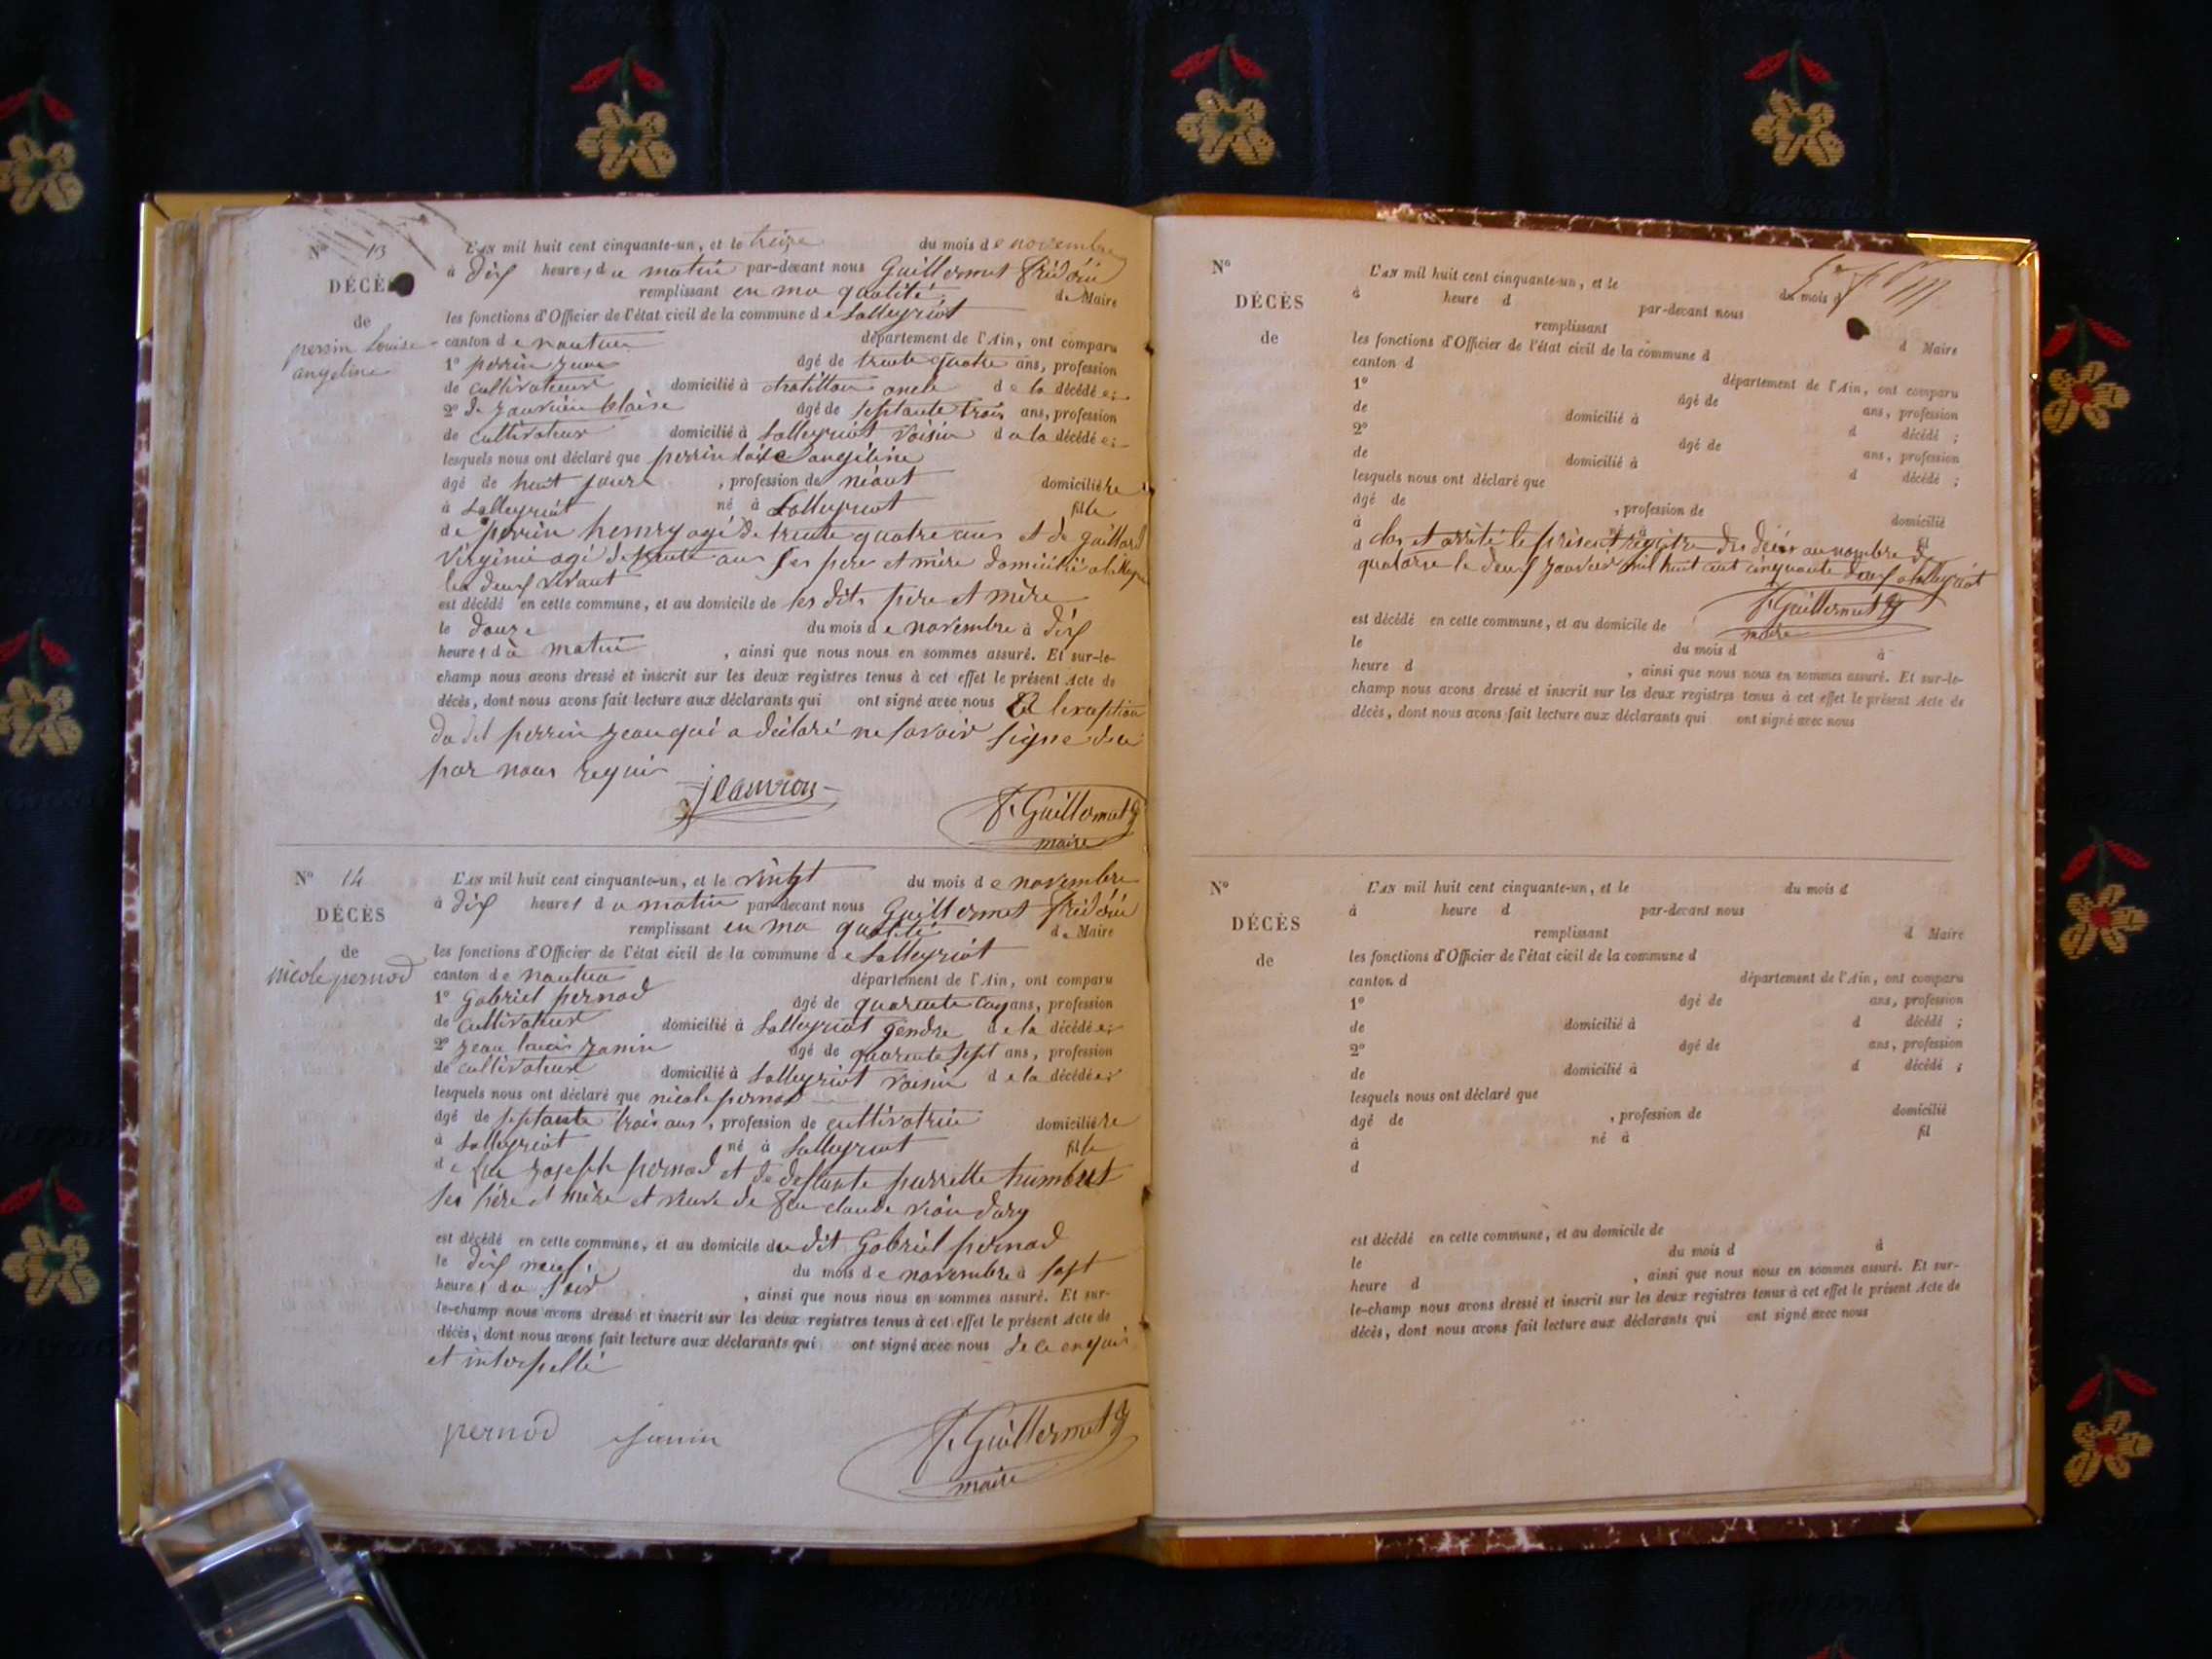 N° 13
DÉCÈS
de
perrin Louise
angeline
L'AN mil huit cent cinquante-un, et le treize du mois de novembre
à dix heures du matin par-devant nous Guillermet frédéric
remplissant en ma qualité de Maire
les fonctions d'Officier de l'état civil de la commune de Lalleyriat
canton de nantua département de l'Ain, ont comparu
1° perrin jean âgé de trente quatre ans, profession
de cultivateur domicilié à chatillon oncle de la décédée;
2° blaise âgé de septante trois ans, profession
de cultivateur domicilié à Lalleyriat voisin de la décédée;
lesquels nous ont déclaré que perrin angéline
âgé de huit jours, profession de néant domiciliée
à Lalleyriat né à Lalleyriat fille
de perrin henry agé de trente quatre ans et de gaillard
Virginie agé de trente ans ses pere et mère domicilié a
les deux vivant
est décédé en cette commune, et au domicile de ses dits père et mère
le douze du mois de novembre à dix
heures du matin, ainsi que nous nous en sommes assuré. Et sur-le-
champ nous avons dressé et inscrit sur les deux registres tenus à cet effet le présent Acte de
décès, dont nous avons fait lecture aux déclarants qui ont signé avec nous a lexception
du dit perrin jean qui a déclaré ne savoir signe de ce
par nous requis
F. Guillermet
maire
N° 14
DÉCÈS
de
nicole pernod
L'AN mil huit cent cinquante-un, et le vingt du mois de novembre
à dix heures du matin par-devant nous Guillermet frédéric
remplissant en ma qualité de Maire
les fonctions d'Officier de l'état civil de la commune de Lalleyriat
canton de nantua département de l'Ain, ont comparu
1° Gabriel pernod âgé de quarente ans, profession
de cultivateur domicilié à Lalleyriat gendre de la décédée;
2° jean louis janin âgé de quarente sept ans, profession
de cultivateur domicilié à Lalleyriat voisin de la décédée;
lesquels nous ont déclaré que nicole pernod
âgé de septante trois ans, profession de cultivatrice domiciliée
à Lalleyriat né à Lalleyriat fille
de feu joseph pernod et de defunte pierrette humbert
ses père et mère et veuve de feu claude
est décédé en cette commune, et au domicile du dit Gabriel pernod
le dix neuf du mois de novembre à sept
heures du soir, ainsi que nous nous en sommes assuré. Et sur-
le-champ nous avons dressé et inscrit sur les deux registres tenus à cet effet le présent Acte de
décès, dont nous avons fait lecture aux déclarants qui ont signé avec nous de ce enquis
et interpellé
pernod janin F. Guillermet
maire
N°
DÉCÈS
de
L'AN mil huit cent cinquante-un, et le du mois d
à heure d par-devant nous
remplissant d Maire
les fonctions d'Officier de l'état civil de la commune d
canton d département de l'Ain, ont comparu
1° âgé de ans, profession
de domicilié à d décédé ;
2° âgé de ans, profession
de domicilié à d décédé ;
lesquels nous ont déclaré que
âgé de , profession de domicilié
à né à fil
d clos et arrêté le présent régistre des décès au nombre de
quatorze le deux janvier mil huit cent cinquante deux a Lalleyriat
F. Guillermet
maire
est décédé en cette commune, et au domicile de
le du mois d à
heure d , ainsi que nous nous en sommes assuré. Et sur-le-
champ nous avons dressé et inscrit sur les deux registres tenus à cet effet le présent Acte de
décès, dont nous avons fait lecture aux déclarants qui ont signé avec nous
N°
DÉCÈS
de
L'AN mil huit cent cinquante-un, et le du mois d
à heure d par-devant nous
remplissant d Maire
les fonctions d'Officier de l'état civil de la commune d
canton d département de l'Ain, ont comparu
1° âgé de ans, profession
de domicilié à d décédé ;
2° âgé de ans, profession
de domicilié à d décédé ;
lesquels nous ont déclaré que
âgé de , profession de domicilié
à né à fil
d
est décédé en cette commune, et au domicile de
le du mois d à
heure d , ainsi que nous nous en sommes assuré. Et sur-
le-champ nous avons dressé et inscrit sur les deux registres tenus à cet effet le présent Acte de
décès, dont nous avons fait lecture aux déclarants qui ont signé avec nous